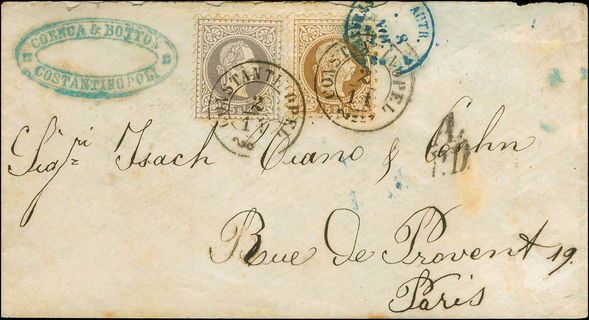 COENCA & BOTTON
COSTANTINOPOLI
CONSTANTINOPEL
2
11
CONSTANTINOPEL
2
11
AUTR.
8
P.D.
Sigri Isach Viano & Cohn
Rue de Provent 19.
Paris